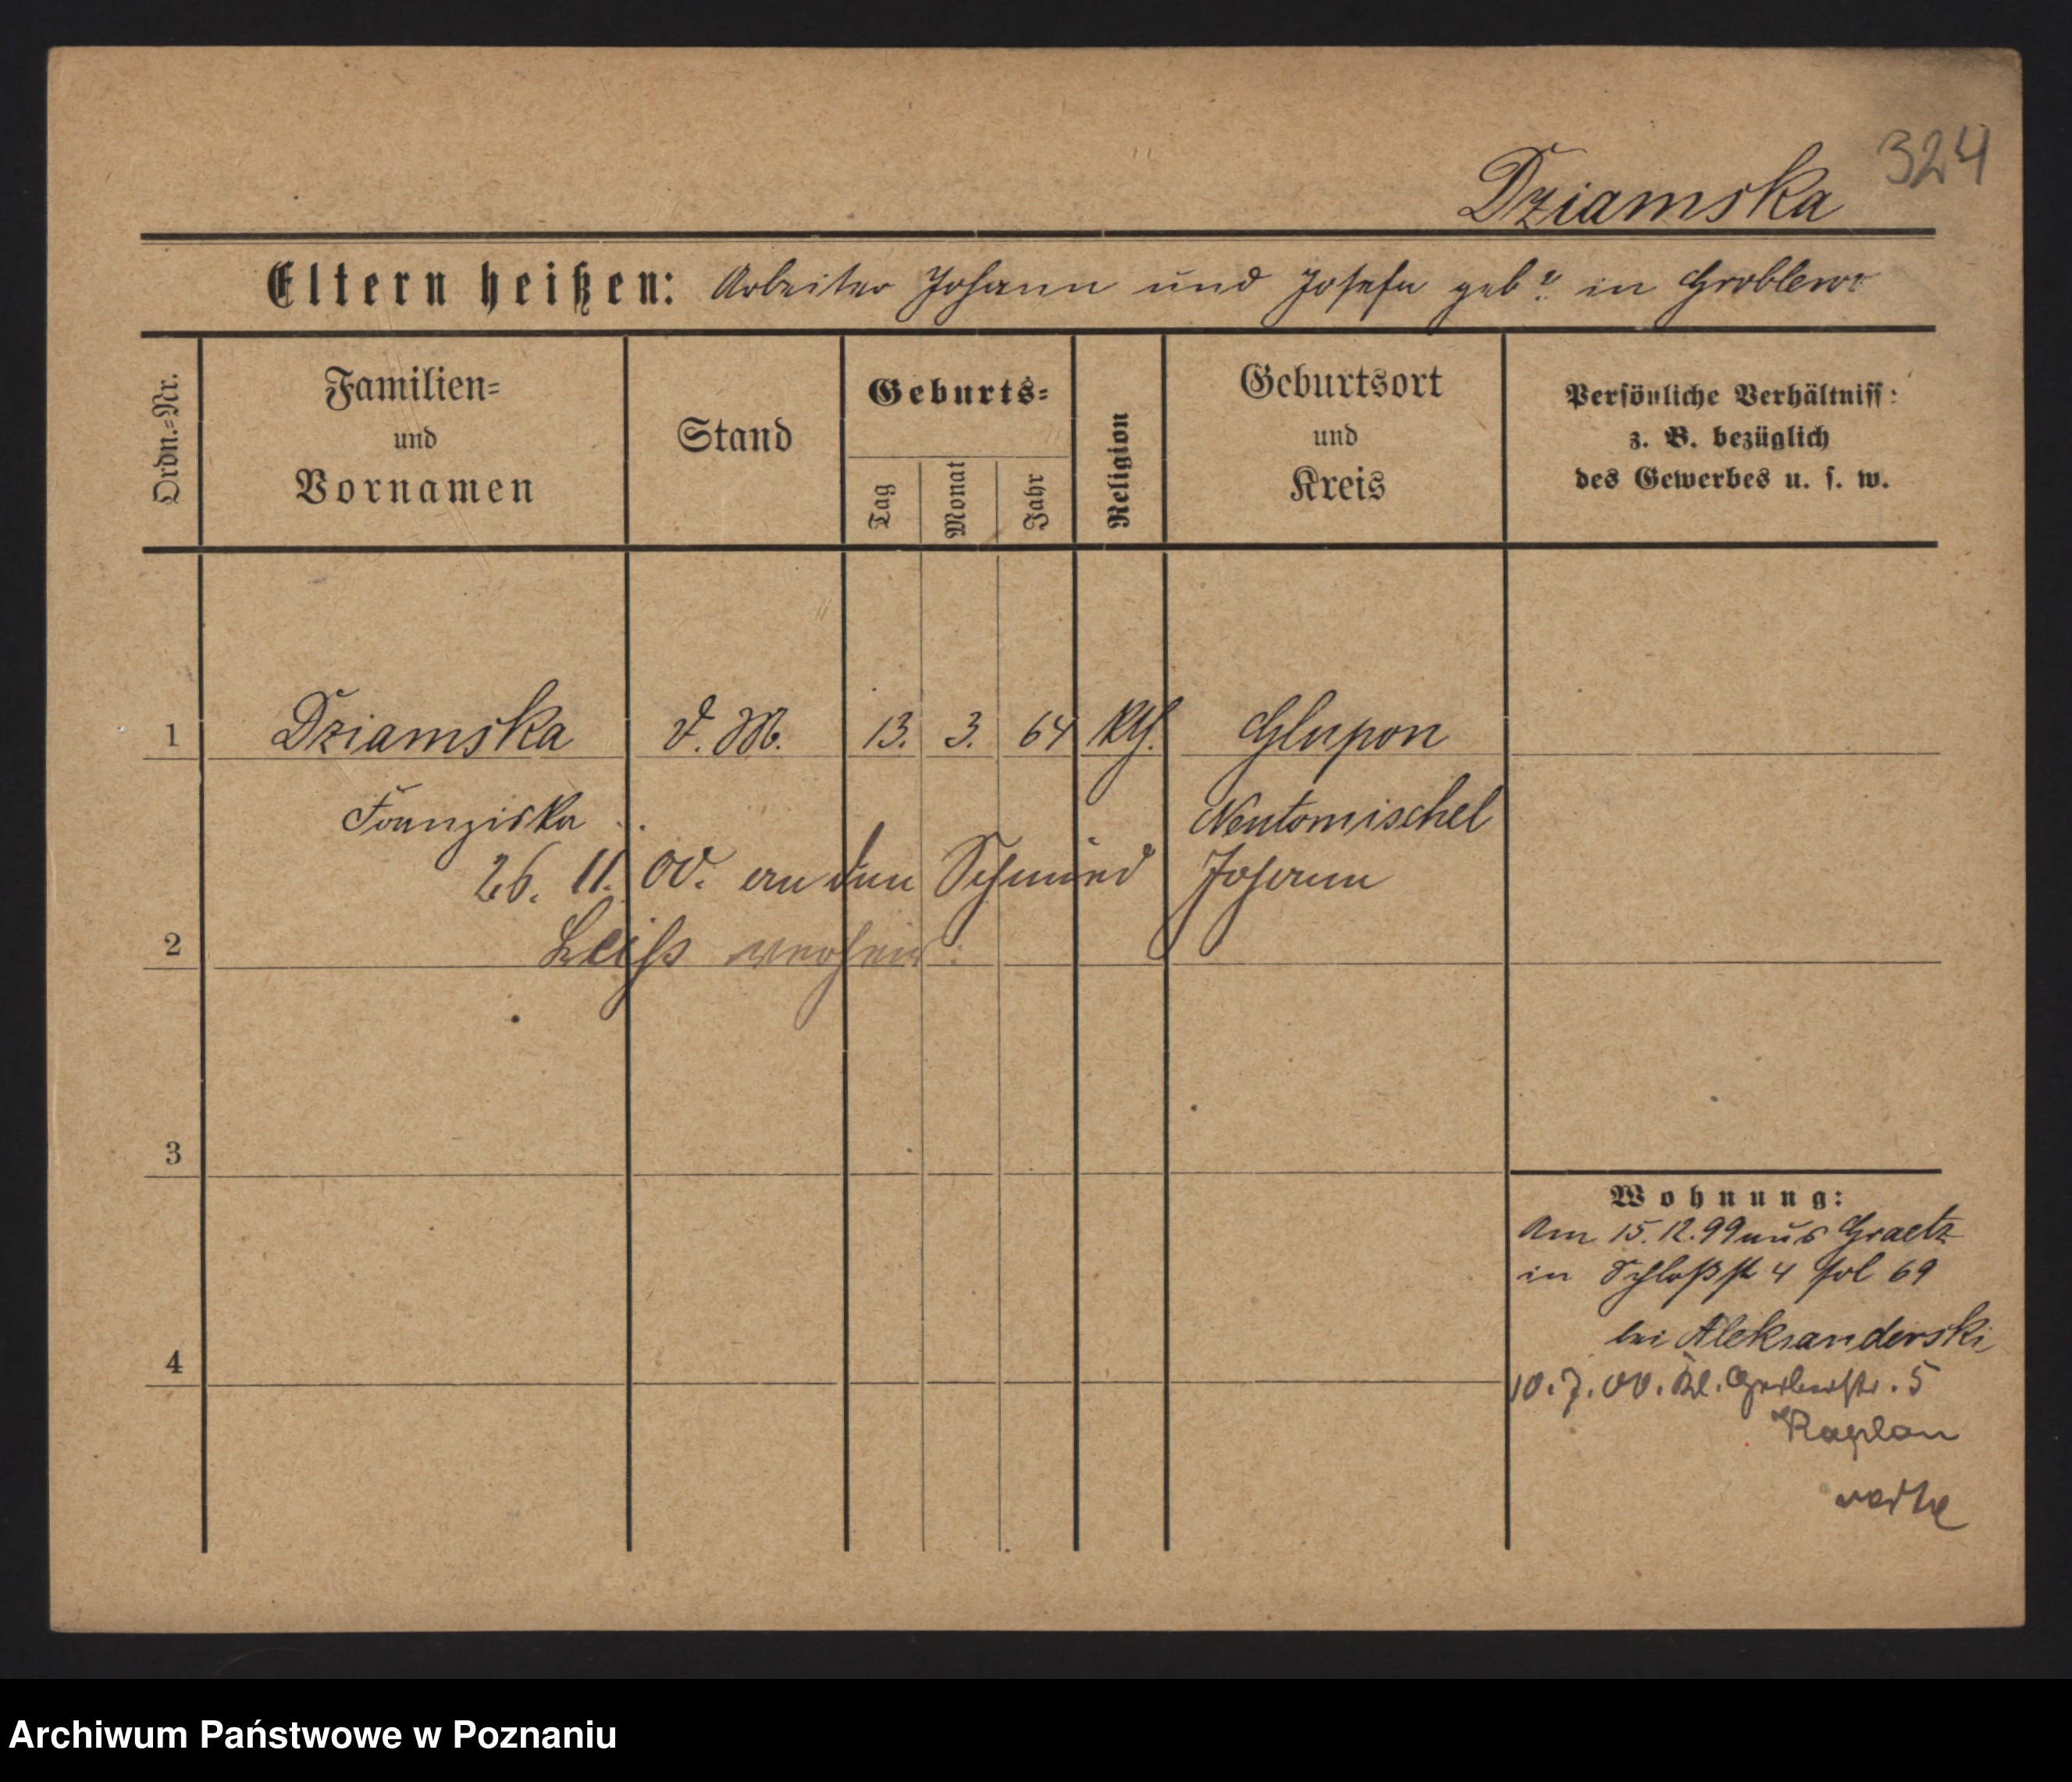 324
Dziamska
Eltern heißen: Arbeiter Johann und Josefa geb ? in Groblewo
Ordn.=Nr.
Familien=
und
Vornamen
Stand
Geburts=
Tag
Monat
Jahr
Religion
Geburtsort
und
Kreis
Persönliche Verhältniss:
z. B. bezüglich
des Gewerbes u. s. w.
1 Dziamska d. M. 13. 3. 64 kth. Glupon
Franziska Neutomischel
26. 11. 00. an den Schmied Johann
2 Leiss verheir.
3
4
Wohnung:
Am 15.12.99 aus Graetz
in Schloßstr 4 fol 69
bei Aleksanderski
10.7.00. Kl. Gerberstr. 5
Kaplan
Archiwum Państwowe w Poznaniu